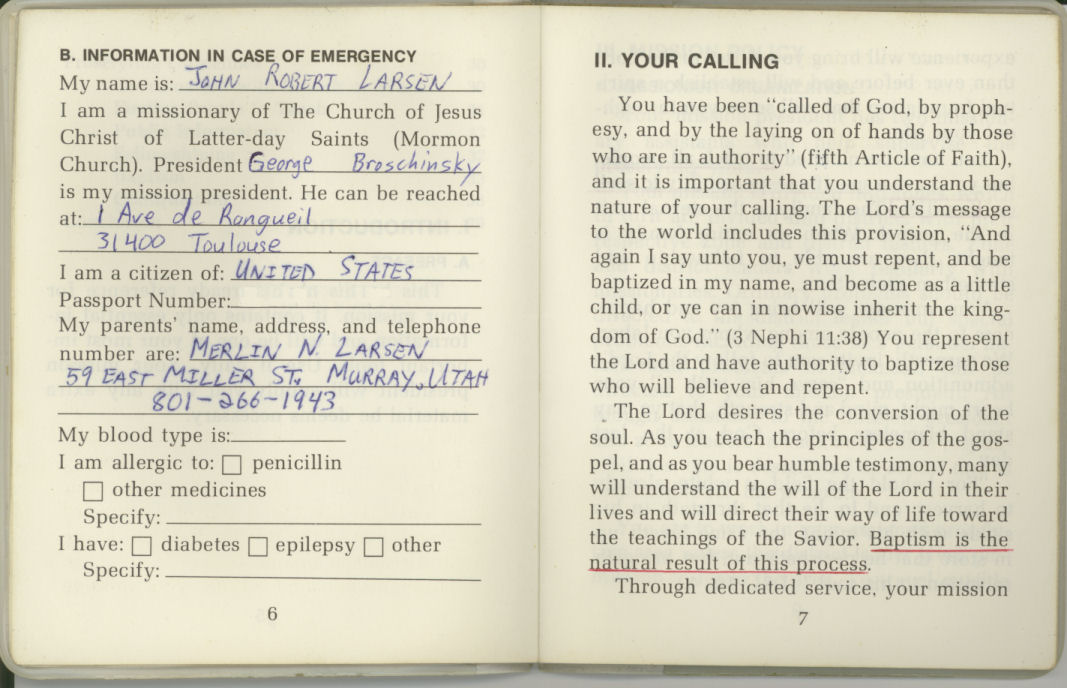 B. INFORMATION IN CASE OF EMERGENCY
My name is: JOHN ROBERT LARSEN
I am a missionary of The Church of Jesus
Christ of Latter-day Saints (Mormon
Church). President George Broschinsky
is my mission president. He can be reached
at: 1 Ave de Rangueil
31400 Toulouse
I am a citizen of: UNITED STATES
Passport Number:
My parents' name, address, and telephone
number are: MERLIN N. LARSEN
59 EAST MILLER ST. MURRAY, UTAH
801-266-1943
My blood type is:
I am allergic to: penicillin
other medicines
Specify:
I have: diabetes epilepsy other
Specify:
6
II. YOUR CALLING
You have been “called of God, by proph-
esy, and by the laying on of hands by those
who are in authority” (fifth Article of Faith),
and it is important that you understand the
nature of your calling. The Lord's message
to the world includes this provision, “And
again I say unto you, ye must repent, and be
baptized in my name, and become as a little
child, or ye can in nowise inherit the king-
dom of God.” (3 Nephi 11:38) You represent
the Lord and have authority to baptize those
who will believe and repent.
The Lord desires the conversion of the
soul. As you teach the principles of the gos-
pel, and as you bear humble testimony, many
will understand the will of the Lord in their
lives and will direct their way of life toward
the teachings of the Savior. Baptism is the
natural result of this process.
Through dedicated service, your mission
7